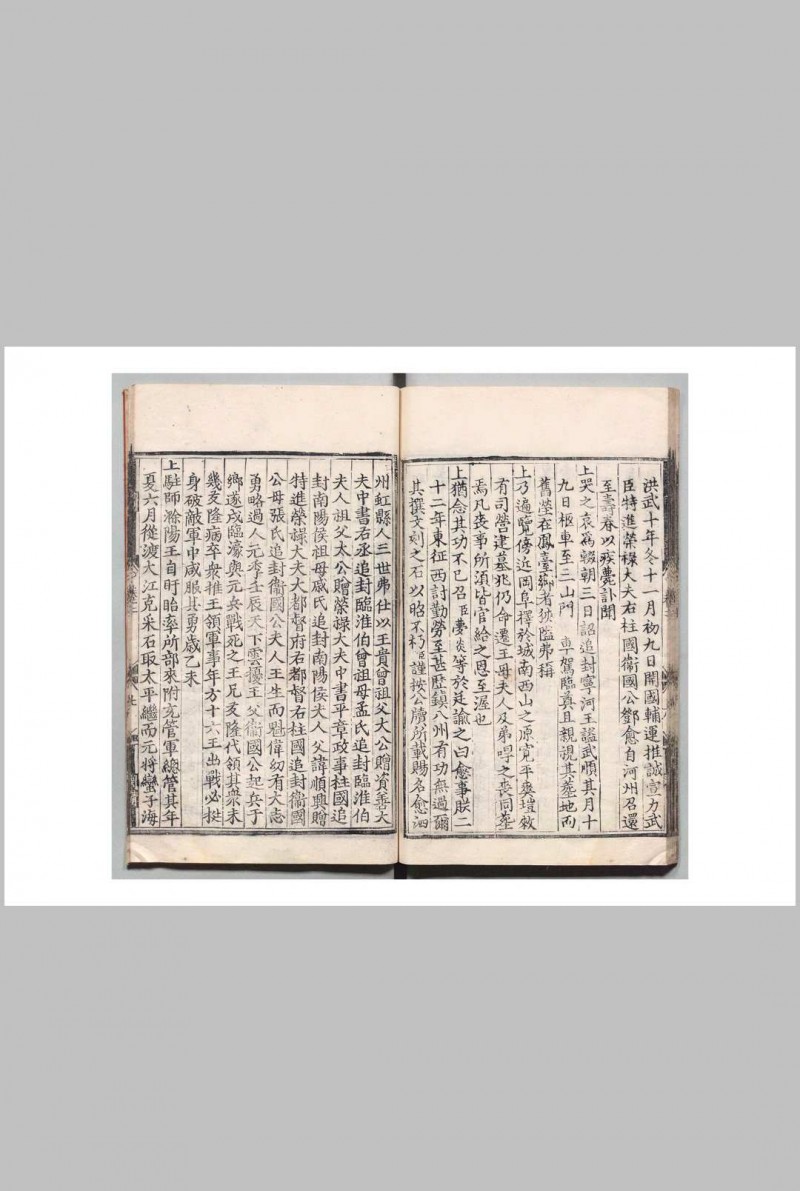 洪武十年冬十一月初九日開國輔運推誠宣力武
臣特進榮祿大夫右柱國衞國公鄧愈自河州召還
至壽春以疾薨訃聞
上哭之哀爲輟朝三日詔追封寧河王諡武順其月十
九日柩車至三山門　車駕臨奠且親視其葬地而
舊塋在鳳臺鄉者狹隘弗稱
上乃遍覽傍近岡阜擇於城南西山之原寬平爽塏敕
有司營建墓兆仍命遷王母夫人及弟㖟之喪同葬
焉凡喪事所須皆官給之恩至渥也
上猶念其功不已召臣夢炎等於廷諭之曰愈事朕二
十二年東征西討勤勞至甚歷鎮八州有功無過爾
其撰文刻之石以昭不朽臣謹按公牘所載賜名愈泗
州虹縣人三世弗仕以王貴曾祖父大公贈資善大
夫中書右丞追封臨淮伯曾祖母孟氏追封臨淮伯
夫人祖父太公贈榮祿大夫中書平章政事柱國追
封南陽侯祖母戚氏追封南陽侯夫人父諱順興贈
特進榮祿大夫大都督府右都督右柱國追封衞國
公母張氏追封衞國公夫人王生而魁偉幼有大志
勇略過人元季壬辰天下雲擾王父衞國公起兵于
鄉遂戍臨濠與元兵戰死之王兄友隆代領其衆未
幾友隆病卒衆推王領軍事年方十六王出戰必挺
身破敵軍中咸服其勇歲乙未
上駐師滁陽王自盱眙率所部來附充管軍總管其年
夏六月從渡大江克采石取太平繼而元將蠻子海